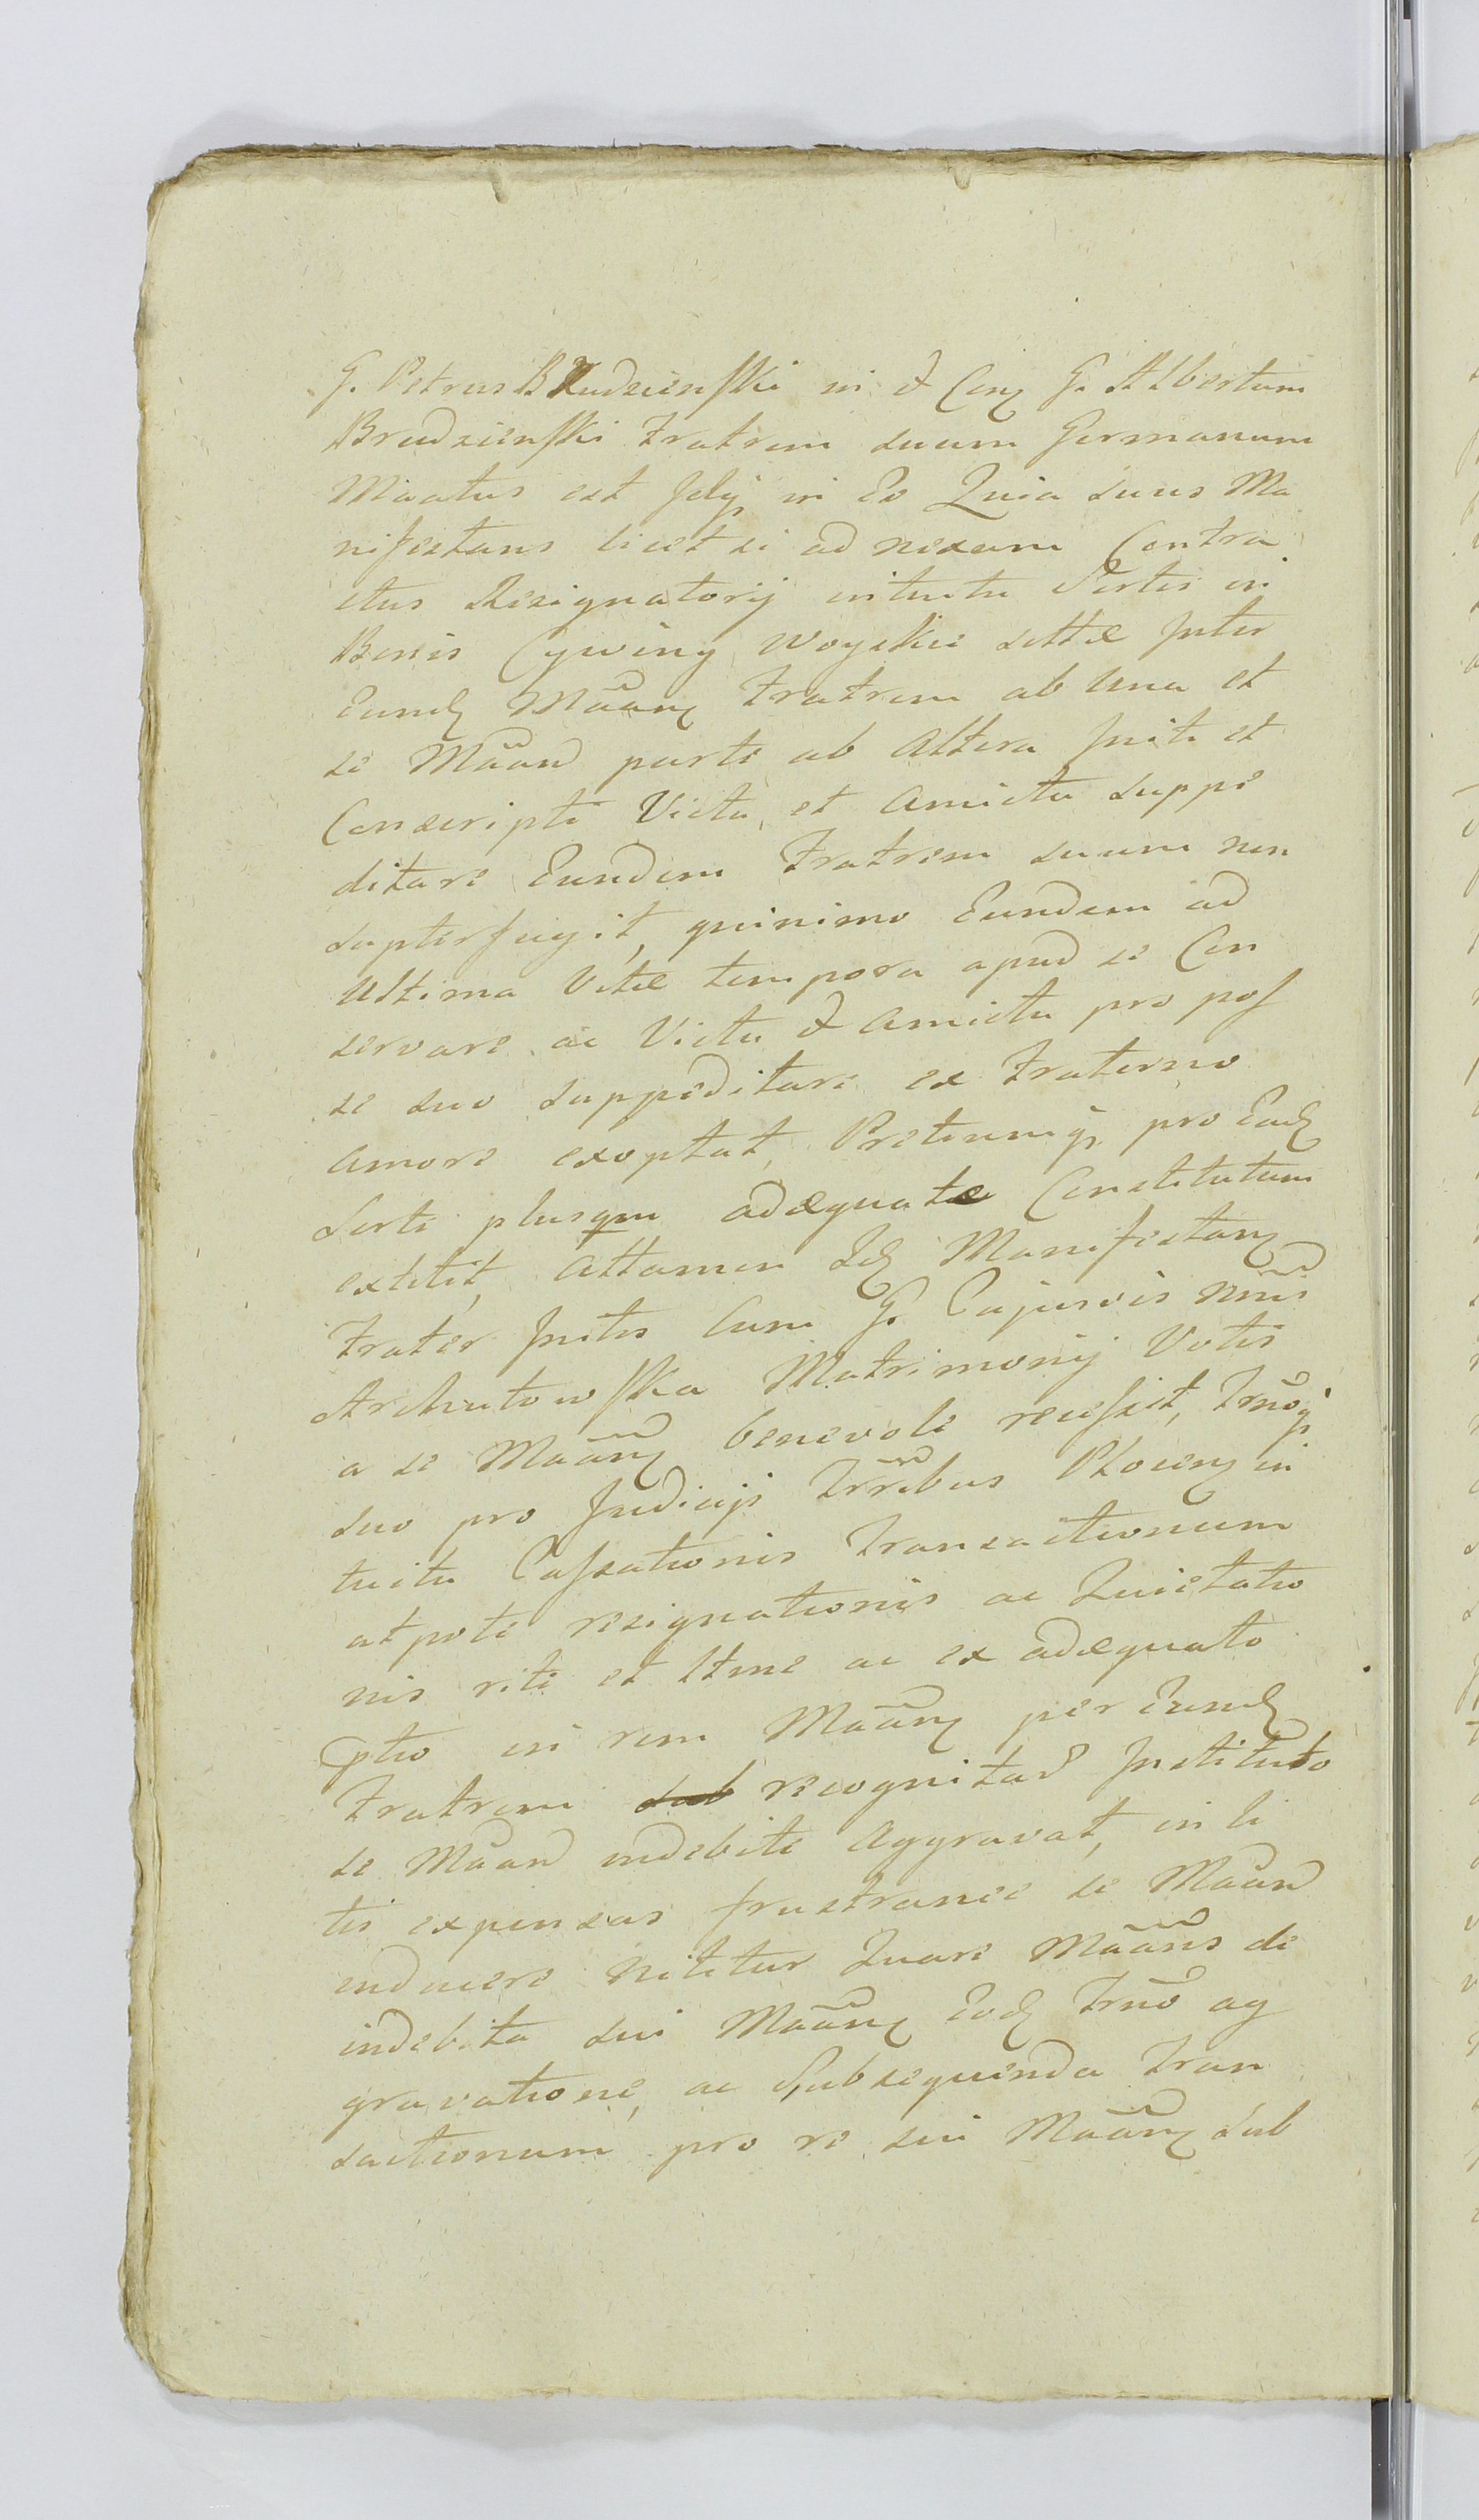 G. Petrus Brudzienski in & Con G. Albertum
Brudzienski Fratrem suum Germanum
Maatus est Idq in Eo Quia suus Ma
nifestans licet se ad nexum Contra
ctus Resignatorij intuitu Sortis in
Bonis Cywiny Woyskie sittæ Inter
Eund Mãan Fratrem ab Una et
se Mãan parte ab Altera Initi et
Conscripti Victu, et Amictu suppe
ditare Eundem Fratrem suum non
supterfugit, quinimo Eundem ad
Ultima Vitæ tempora apud se Con
servare ac Victu & Amictu pro pos
se suo suppeditare ex Fraterno
Amore exoptat, Pretiumq pro Ead
Sorte plusqm adæquate Constitutum
extitit, Attamen Id Manifestan
Frater Initis Cum G. Cajusvis Nnis
Archutowska Matrimonij Votis
a se Mãan benevole recessit, Trnoq
suo pro Judicijs Trribus Plocen in
tuitu Cassationis Transactionum
utpote resignationis ac Quietatio
nis rite et ltme ac ex adæquato
ptio in rem Mãan per Eund
Fratrem sub recognitar Instituto
se Mãan indebite Aggravat, in li
tis expensas frustranee se Mãan
inducere nititur Quare Mãans de
indebita sui Mãan Eod Trno ag
gravatione, ac Subsequenda Tran
sactionum pro re sui Mãan sub